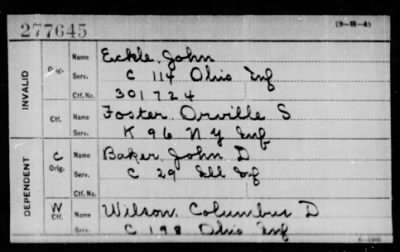 277645 (3-H-4)
INVALID Orig. Name Eckle, John
Serv. C 114 Ohio Inf
Ctf. No. 301724
Ctf. Name Foster, Orville S
Serv. K 96 N Y Inf
DEPENDENT C Orig. Name Baker, John D
Serv. C 29 Ill Inf
W Ctf. Name Wilson, Columbus D
Serv. C 198 Ohio Inf